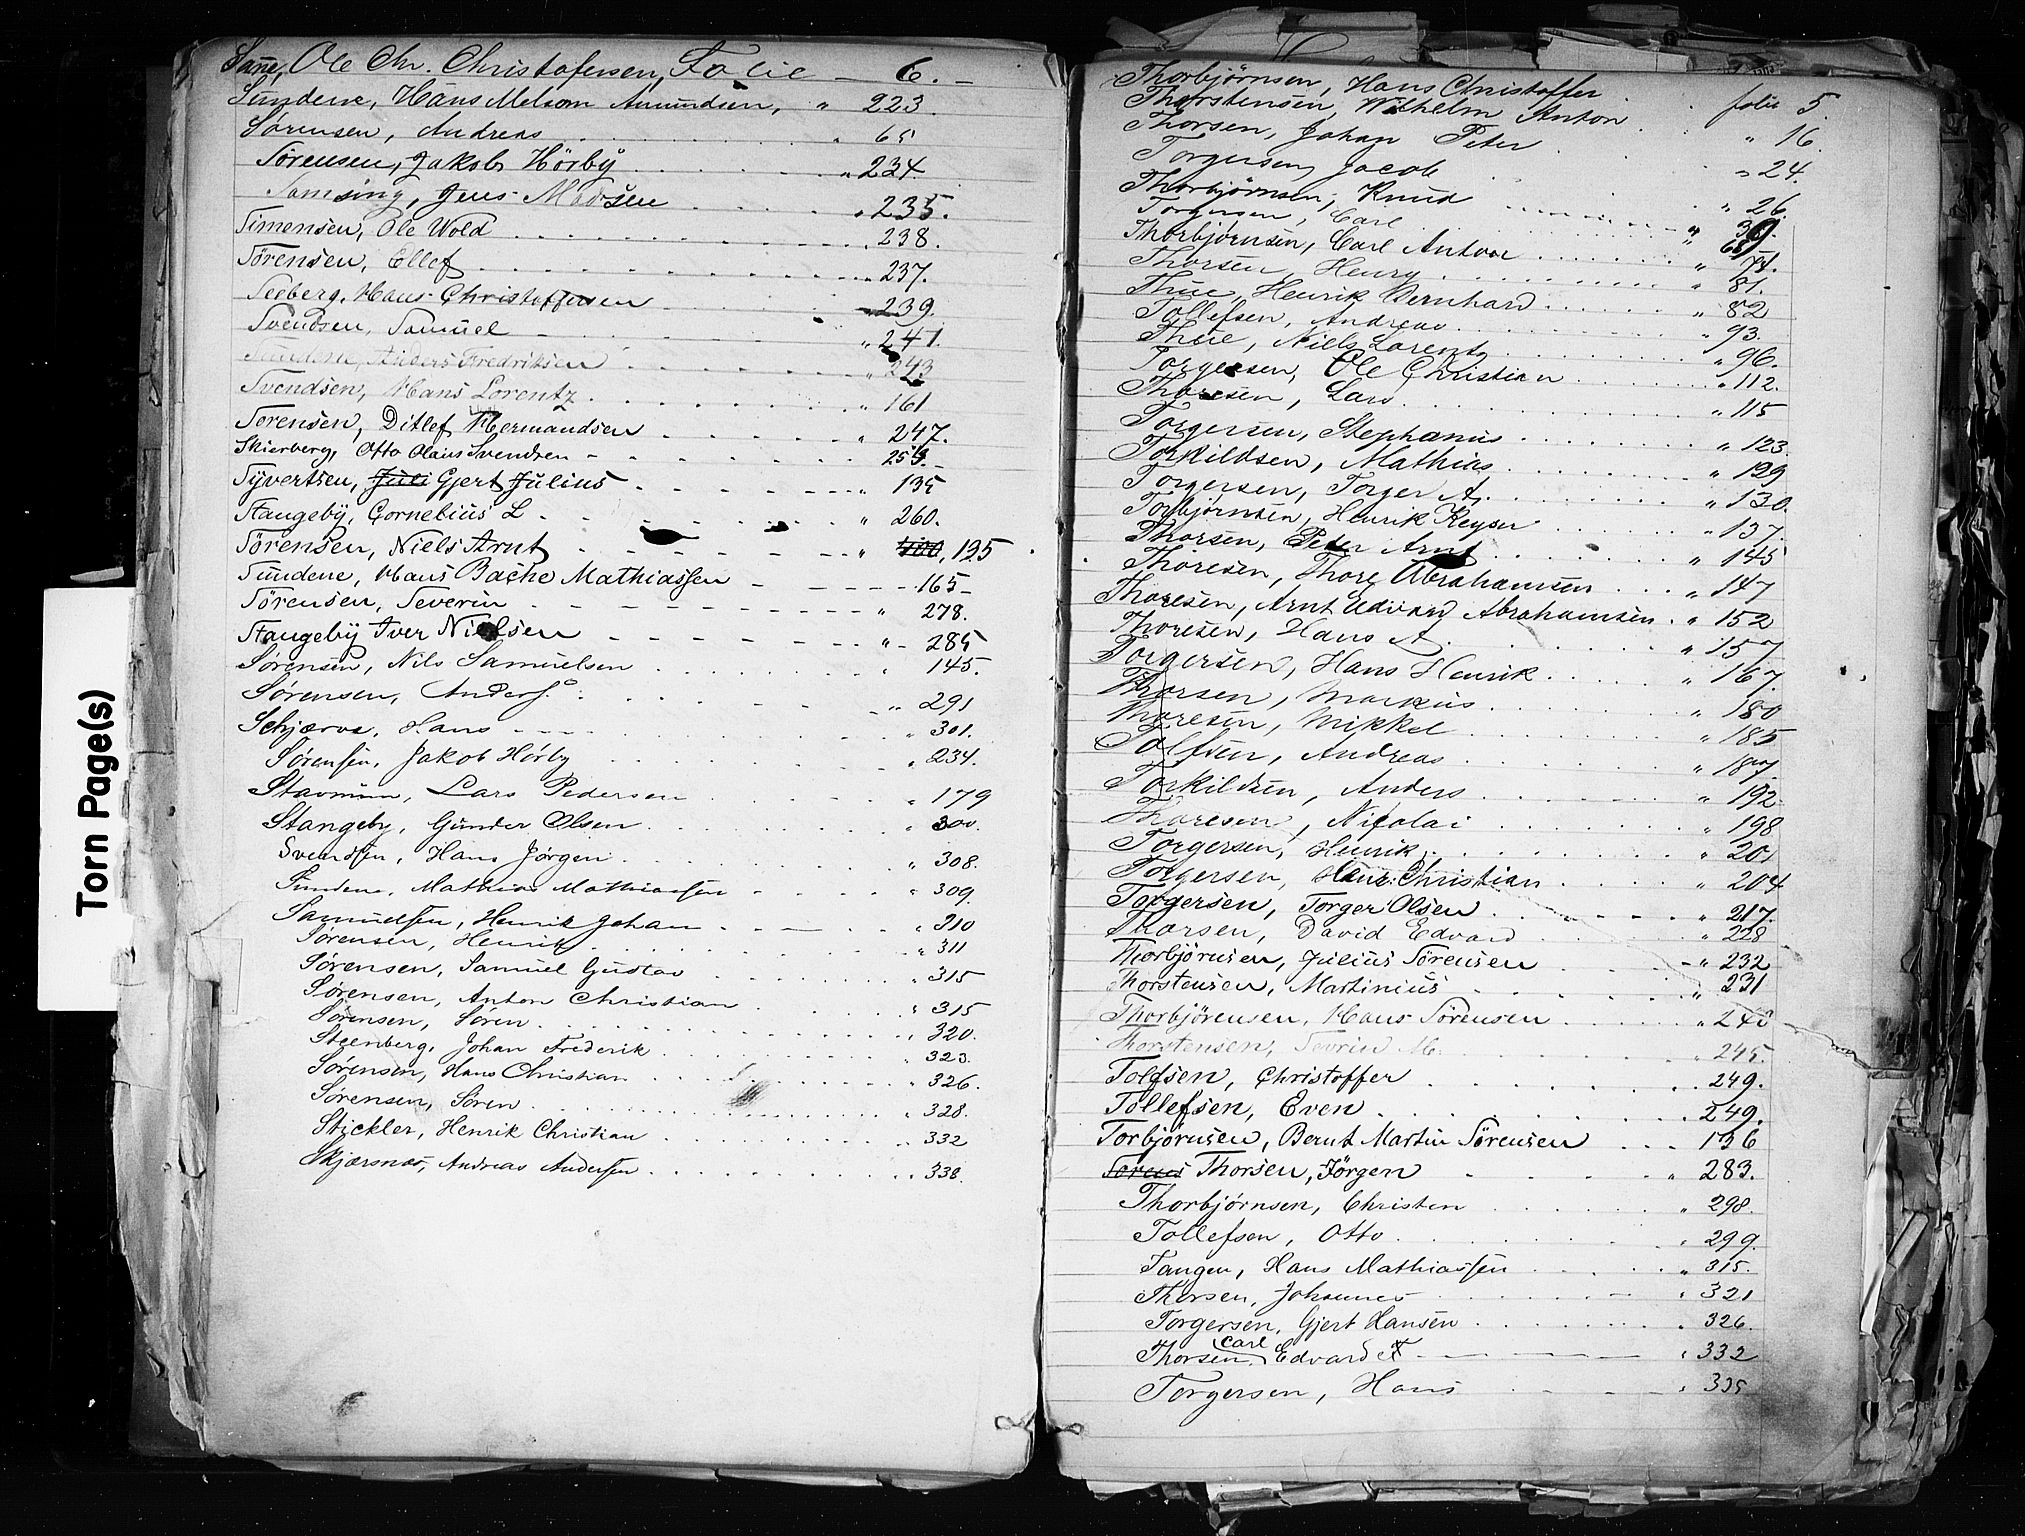 Sane, Ole Chr. Christofersen, Folie – 6. –
Sundene, Hans Melsom Amundsen, " 223.
Sørensen, Andreas " 65
Sørensen, Jakob Hörby " 234.
Samsing, Jens Madsen " 235.
Simensen, Ole Wold " 238.
Sörensen, Ellef " 237.
Seeberg, Hans Christoffersen " 239.
Svendsen, Samuel " 241.
Sundene, Anders Fredriksen " 243
Svendsen, Hans Lorentz " 161
Sorensen, Ditlef Hermandsen " 247.
Skierberg, Otto Olaus Svendsen
Syvertsen, Juli Gjert Julius " 135
Stangeby, Cornelius L " 260.
Sörensen, Niels Arnt " 195
Sundene, Hans Bache Mathiassen 165 –
Sörensen, Severin " 278.
Stangeby Iver Nielsen " 285
Sørensen, Nils Samuelsen " 145.
Sørensen, Anders O " 291
Schjærve, Hans " 301.
Sørensen, Jakob Hörby " 234.
Lars Pedersen " 179
Stangeby, Gunder Olsen " 300.
Svendsen, Hans Jørgen " 308.
Sundene, Mathias Mathiassen " 309.
Samuelsen, Henrik Johan " 310
Sørensen, Henrik " 311
Sørensen, Samuel Gustav " 315
Sørensen, Anton Christian " 315
Sørensen, Søren " 320.
Steenberg, Johan Frederik " 323.
Sørensen, Hans Christian " 326.
Sørensen, Søren " 328.
Stickler, Henrik Christian " 332
Skjærsnæs, Andreas Andersen " 338.
Torn Page(s)
Thorbjørnsen, Hans Christoffer folie 5.
Thorstensen, Wilhelm Anton " 16.
Thorsen, Johan Peter " 24.
Torgersen, Jacob " 26.
Thorbjörnsen, Knud
Torgersen, Carl
Thorbjörnsen, Carl Anton
Thorsen, Henry " 81.
Thue, Henrik Bernhard " 82
Tollefsen, Andreas " 93.
Thue, Niels Lorentz " 96.
Torgersen, Ole Christian " 112.
Thoresen, Lars " 115
Torgersen, Stephanus " 123
Torkildsen, Mathias " 129
Torgersen, Torger A. " 130.
Torbjörnsen, Henrik Keyser " 137.
Thorsen, Peter Arnt " 145
Thoresen, Thore Abrahamsen " 147
Thoresen, Arnt Edvard Abrahamsen " 152
Thoresen, Hans A. " 157
Torgersen, Hans Henrik " 167.
Thorsen, Markus " 180
Thoresen, Mikkel " 185
Tolfsen, Andreas " 187.
Torkildsen, Anders " 192
Thoresen, Nicolai " 198
Torgersen, Henrik " 201
Torgersen, Christian " 204
Torgersen, Torger Olsen " 217.
Thorsen, David Edvard " 228
Thorbjörnsen, Julius Sörensen " 232
Thorstensen, Martinius " 231
Thorbjörensen, Hans Sörensen
Thorstensen, Sevrin M. " 245.
Tolfsen, Christoffer " 249.
Tollefsen, Even 249.
Torbjörnsen, Bernt Martin Sörensen 136
Thorsen, Jörgen " 283.
Thorbjørnsen, Christen " 298.
Tollefsen, Otto " 299.
Tangen, Hans Mathiassen " 315.
Thorsen, Johannes " 321
Torgersen, Gjert Hansen " 326.
Thorsen, Carl Edvard " 332
Torgersen, Hans " 335